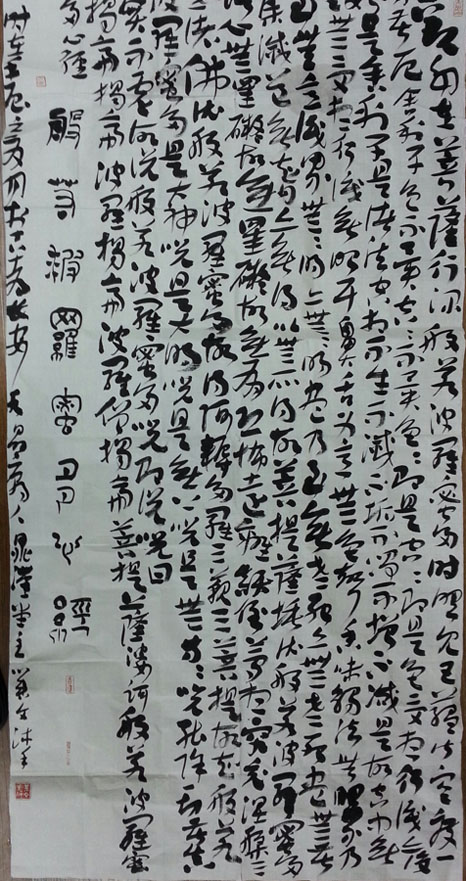 觀自在菩薩行深般若波羅蜜多時照見五蘊皆空度一
切苦厄舍利子色不異空空不異色色即是空空即是色受想行識亦復
如是舍利子是諸法空相不生不滅不垢不淨不增不減是故空中無
色無受想行識無眼耳鼻舌身意無色聲香味觸法無眼界乃
至無意識界無無明亦無無明盡乃至無老死亦無老死盡無苦
集滅道無智亦無得以無所得故菩提薩埵依般若波羅蜜多
故心無罣礙無罣礙故無有恐怖遠離顛倒夢想究竟涅槃三
世諸佛依般若波羅蜜多故得阿耨多羅三藐三菩提故知般若
波羅蜜多是大神咒是大明咒是無上咒是無等等咒能除一切苦真
實不虛故說般若波羅蜜多咒即說咒曰
揭諦揭諦波羅揭諦波羅僧揭諦菩提薩婆訶般若波羅蜜
多心經
般若波羅蜜多心經